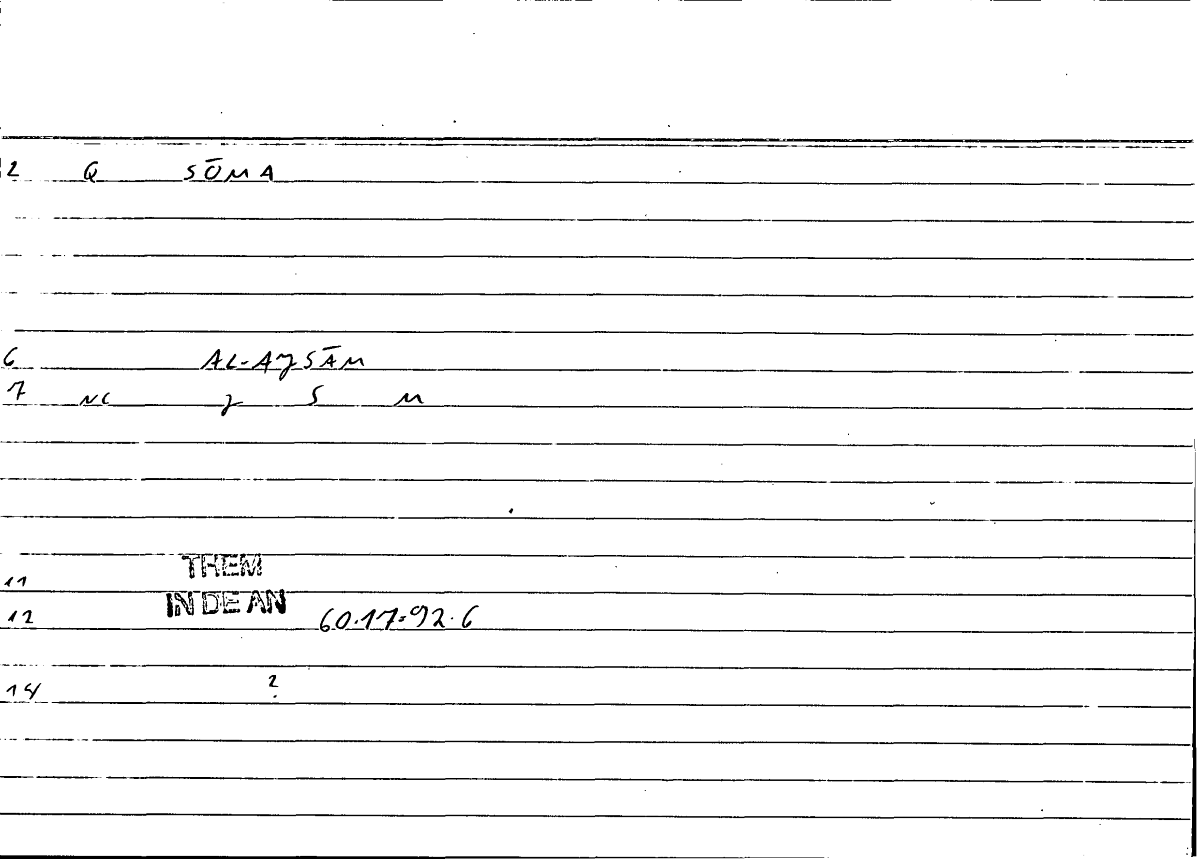 2 Q SŌMA
6 AL-AJSĀM
7 NC J S M
11 THEM
12 IN DE AN 60.17.92.6
14 ?